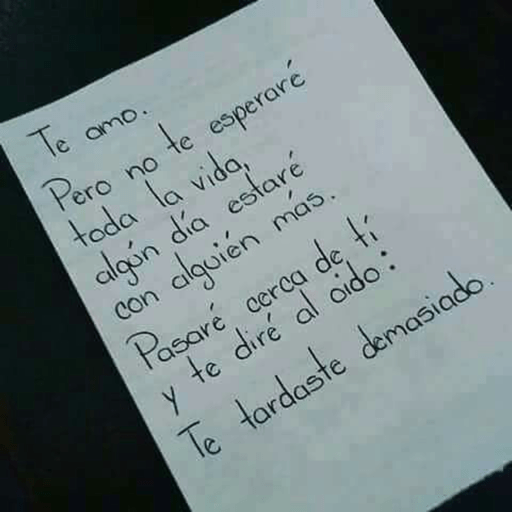 Te amo.
Pero no te esperaré
toda la vida,
algún día estaré
con alguién más.
Pasaré cerca de tí
y te diré al oido:
Te tardaste demasiado.